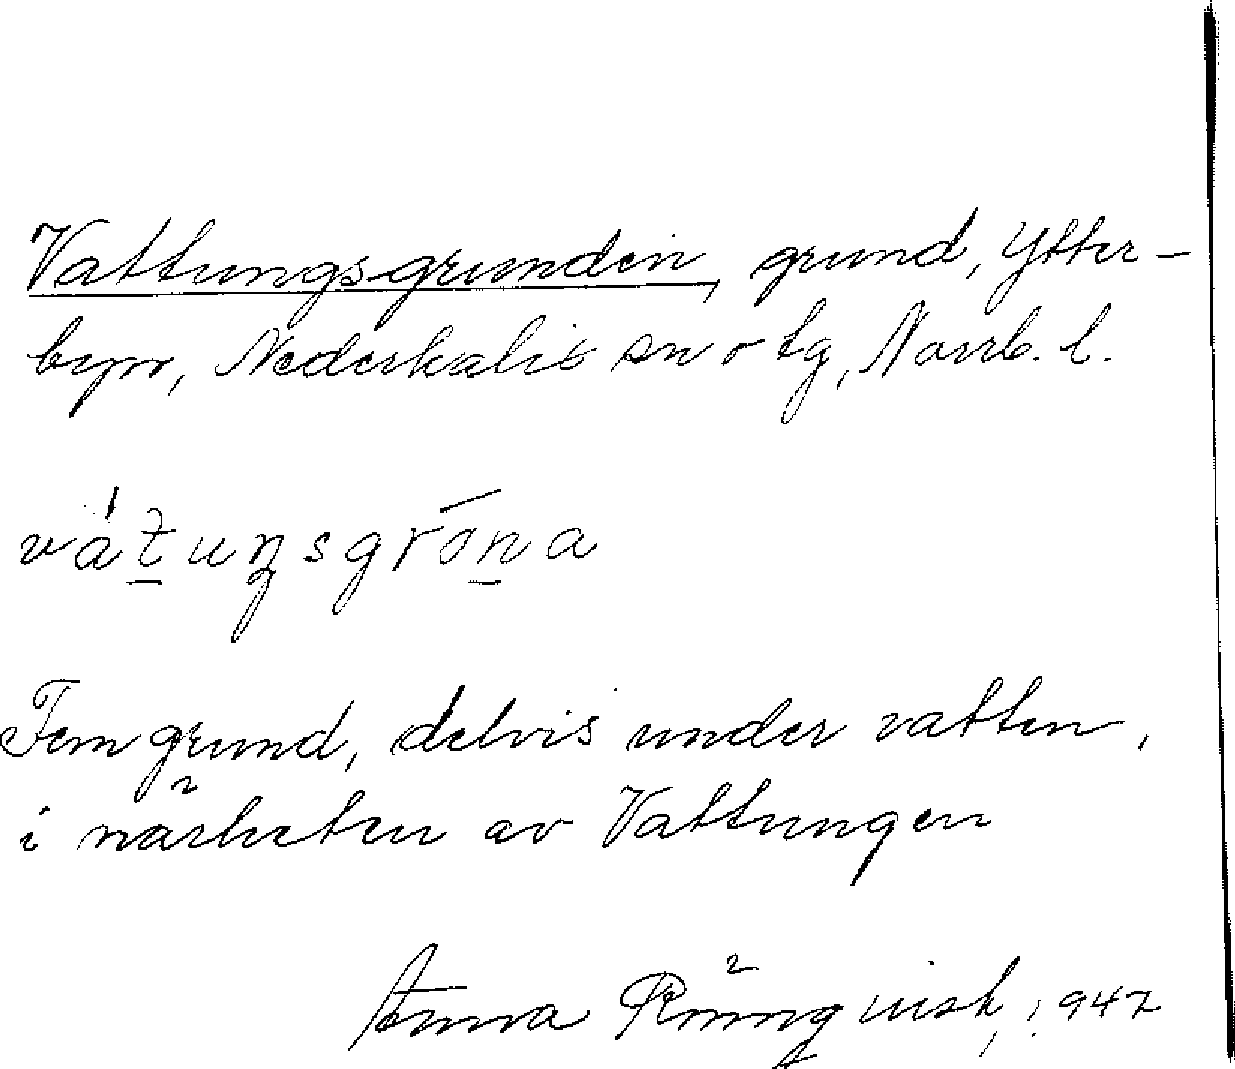 Vattungsgrunden, grund, Ytter-
byn, Nederkalix sn o tg, Norrb. l.
Fem grund, delvis under vatten,
i närheten av Vattungen
Anna Rönnqvist, 1942